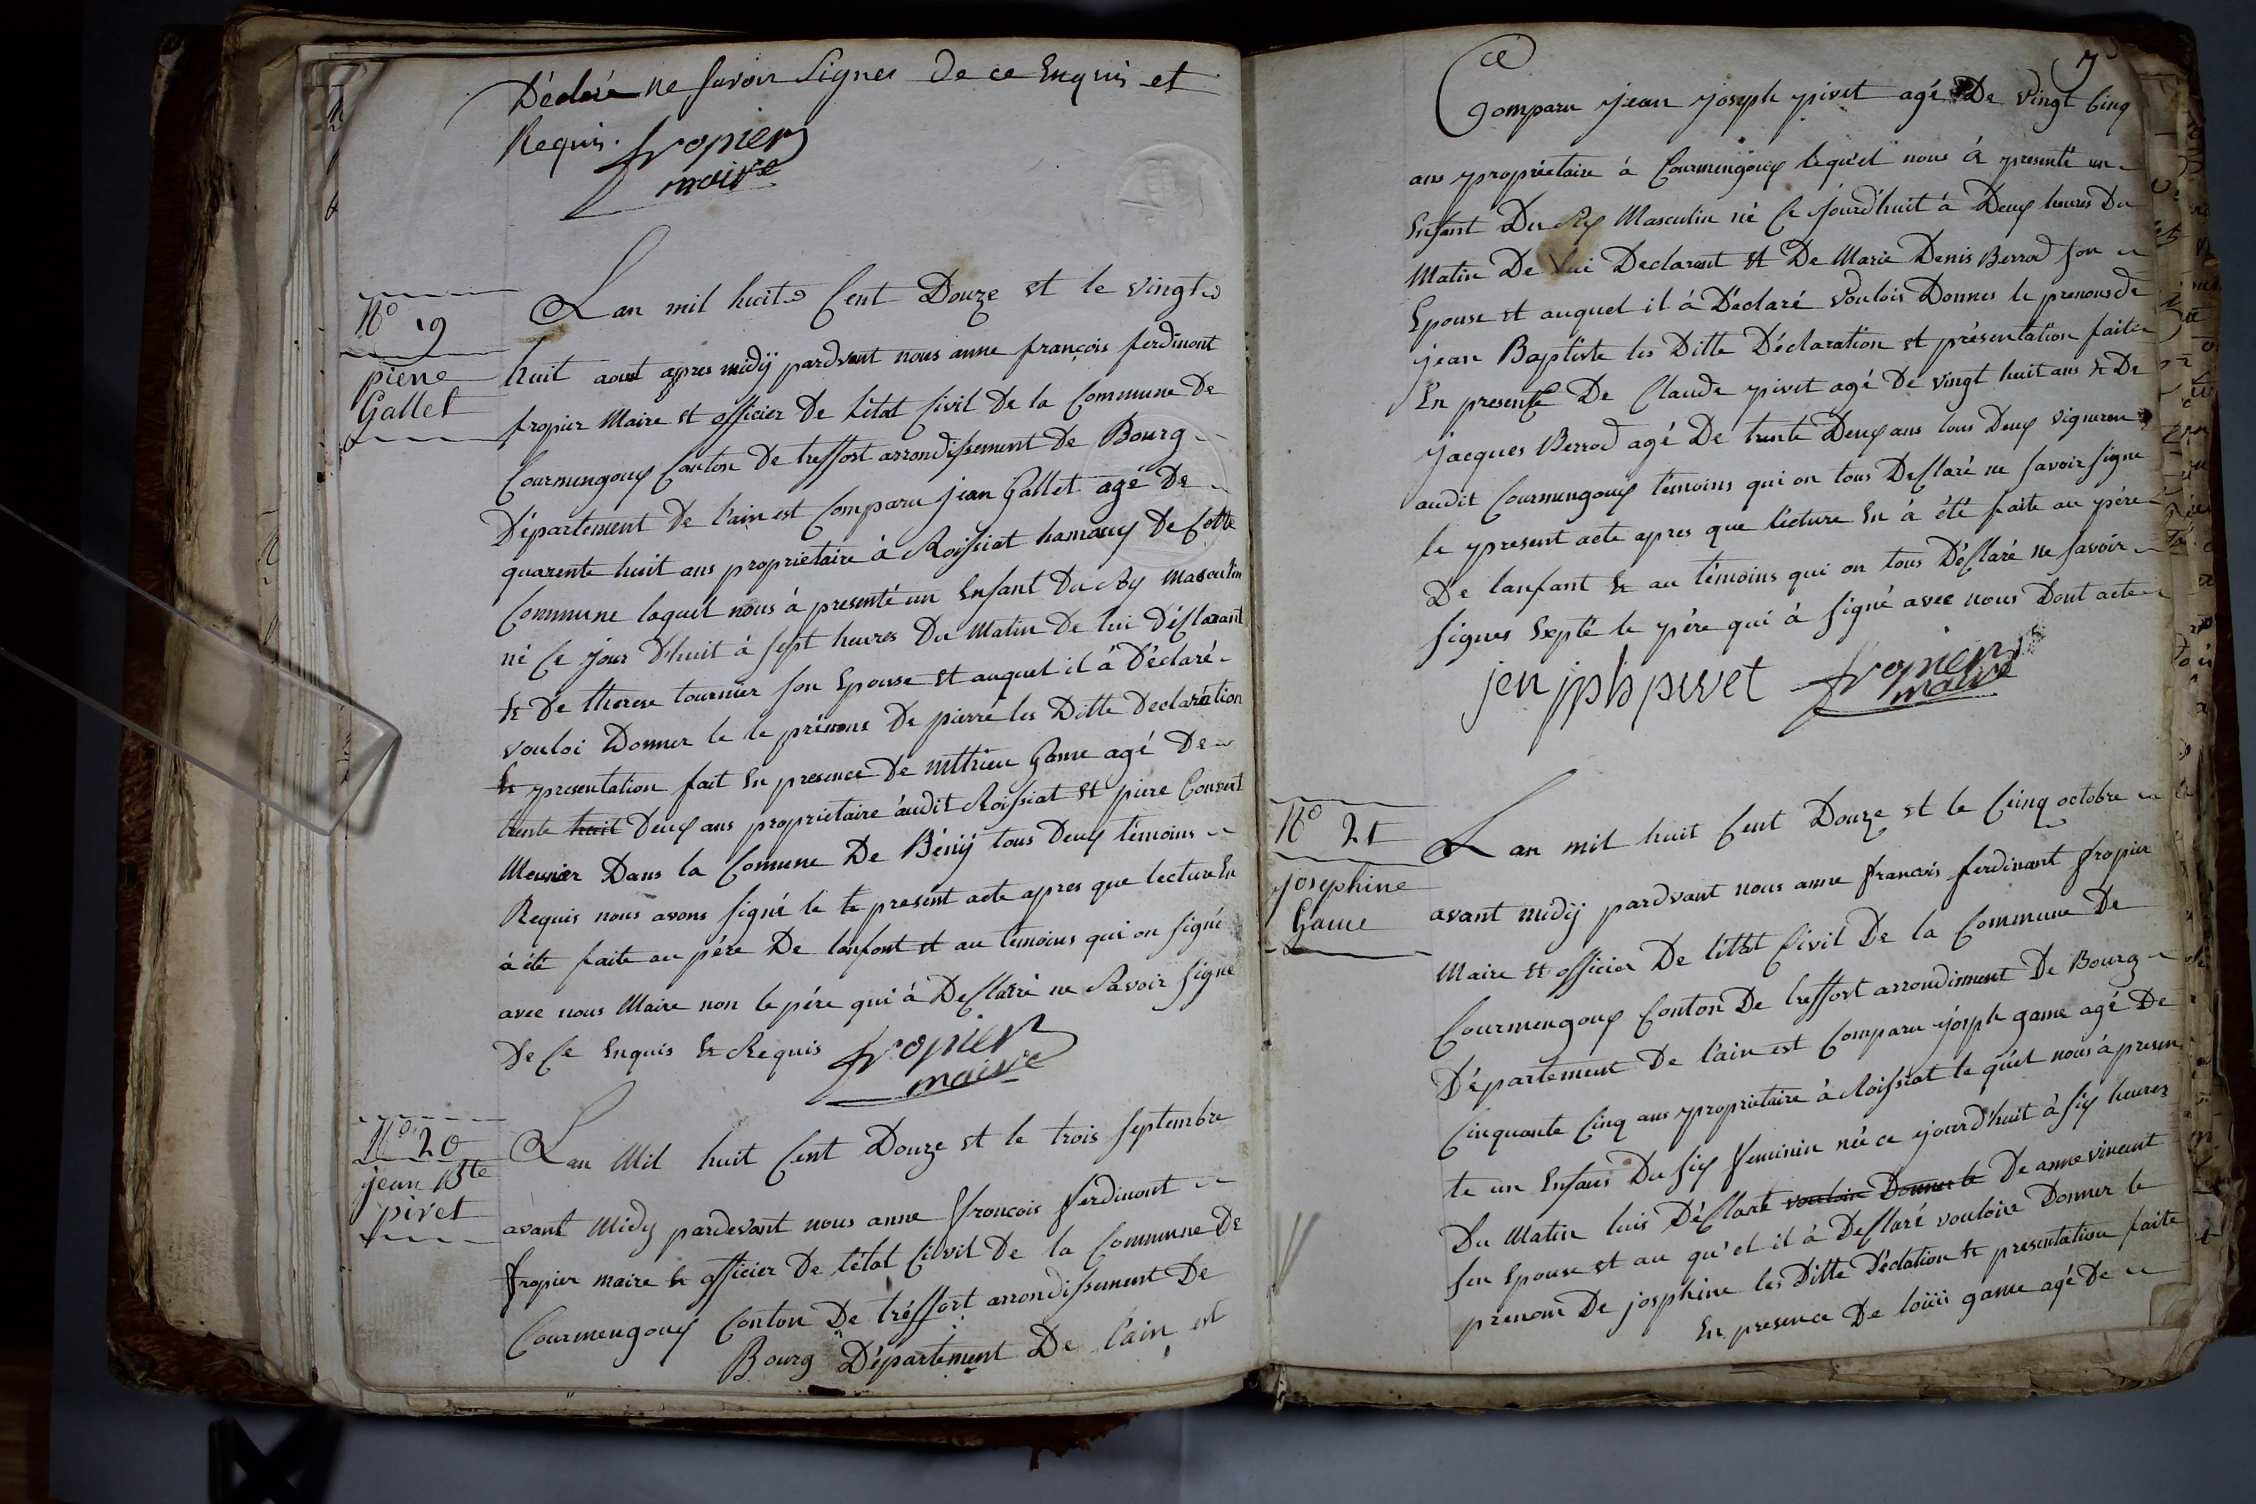 Déclaré ne savoir Signer de ce Enquis et
Requis. fropier
maire
N° 19
piere
Gallet
Lan mil huit Cent Douze et le vingt
huit aout apres midÿ pardvant nous anne françois ferdinont
fropier Maire et officier De létat Civil De la Commune De
Courmengoux Conton De treffort arrondissement De Bourg
Département De l'ain est Comparu jean Gallet agé De
quarente huit ans proprietaire à Roissiat hamaux De Cette
Commune lequel nous à presenté un Enfant Du Sex Masculin
né Ce jour D'huit à sept heures Du Matin De lui Déclarant
et De therese tournier son Epouse et auquel il à Déclaré
vouloi Donner le le prénoms De pierre les Ditte Declaration
et presentation fait En presence De mthieu Game agé De
trente huit Deux ans proprietaire audit Roissiat et piere Convert
Meunier Dans la Comune De Bénÿ tous Deux témoins
Requis nous avons signé le te present acte apres que lecture En
à été faite au pére De lanfont et au témoins qui on signé
avec nous Maire non le pére qui à Desclaré ne Savoir signé
De Ce Enquis et Requis fropier
maire
N° 20
jean Bte
pivet
Lan Mil huit Cent Douze et le trois septembre
avant Midy pardevant nous anne françois ferdinont
fropier maire et officier De létat Civil De la Commune De
Courmengoux Conton De tréffort arrondissement De
Bourg Département De l'ain est
Ce
7
Comparu jean joseph pivet agé De vingt Cinq
ans proprietaire à Courmengoux lequ'el nous à presenté un
Enfant Du Sex Masculin né Ce jourd'huit à Deux heures Du
Matin De lui Declarant et De Marie Denis Berrod son
Epouse et auquel il à Déclaré Voulois Donner le prenons De
jean Baptiste les Ditte Déclaration et présentation faite
En presence De Claude pivet agé De vingt huit ans et De
jacques Berrod agé De trente Deux ans tous Deux vigneron
audit Courmengoux témoins qui on tous Desclaré ne savoir signe
le present acte apres que lécture En à été faite au pére
De lanfant et au témoins qui on tous Désclaré ne savoir
signer Exepté le pére qui à signé avec nous Dont acte
jen jph pivet fropier
maire
N° 21
josephine
Game
Lan mil huit Cent Douze et le Cinq octobre
avant midÿ pardvant nous anne francois ferdinant fropier
Maire et officier De létat Civil De la Commune De
Courmengoux Conton De treffort arrondisment De Bourg
Département De l'ain est Comparu josph game agé De
Cinquante Cinq ans proprietaire à Roissiat le qu'el nous à presen
te un Enfans Du six feminin née ce jourd'huit à six heures
Du Matin luis Désclaré vouloir Donner le De anne vincent
son Epouse et au qu'el il à Desclaré vouloir Donner le
prenom De josphine les Ditte Déclation et presentation faite
En presence De loüis game agé De